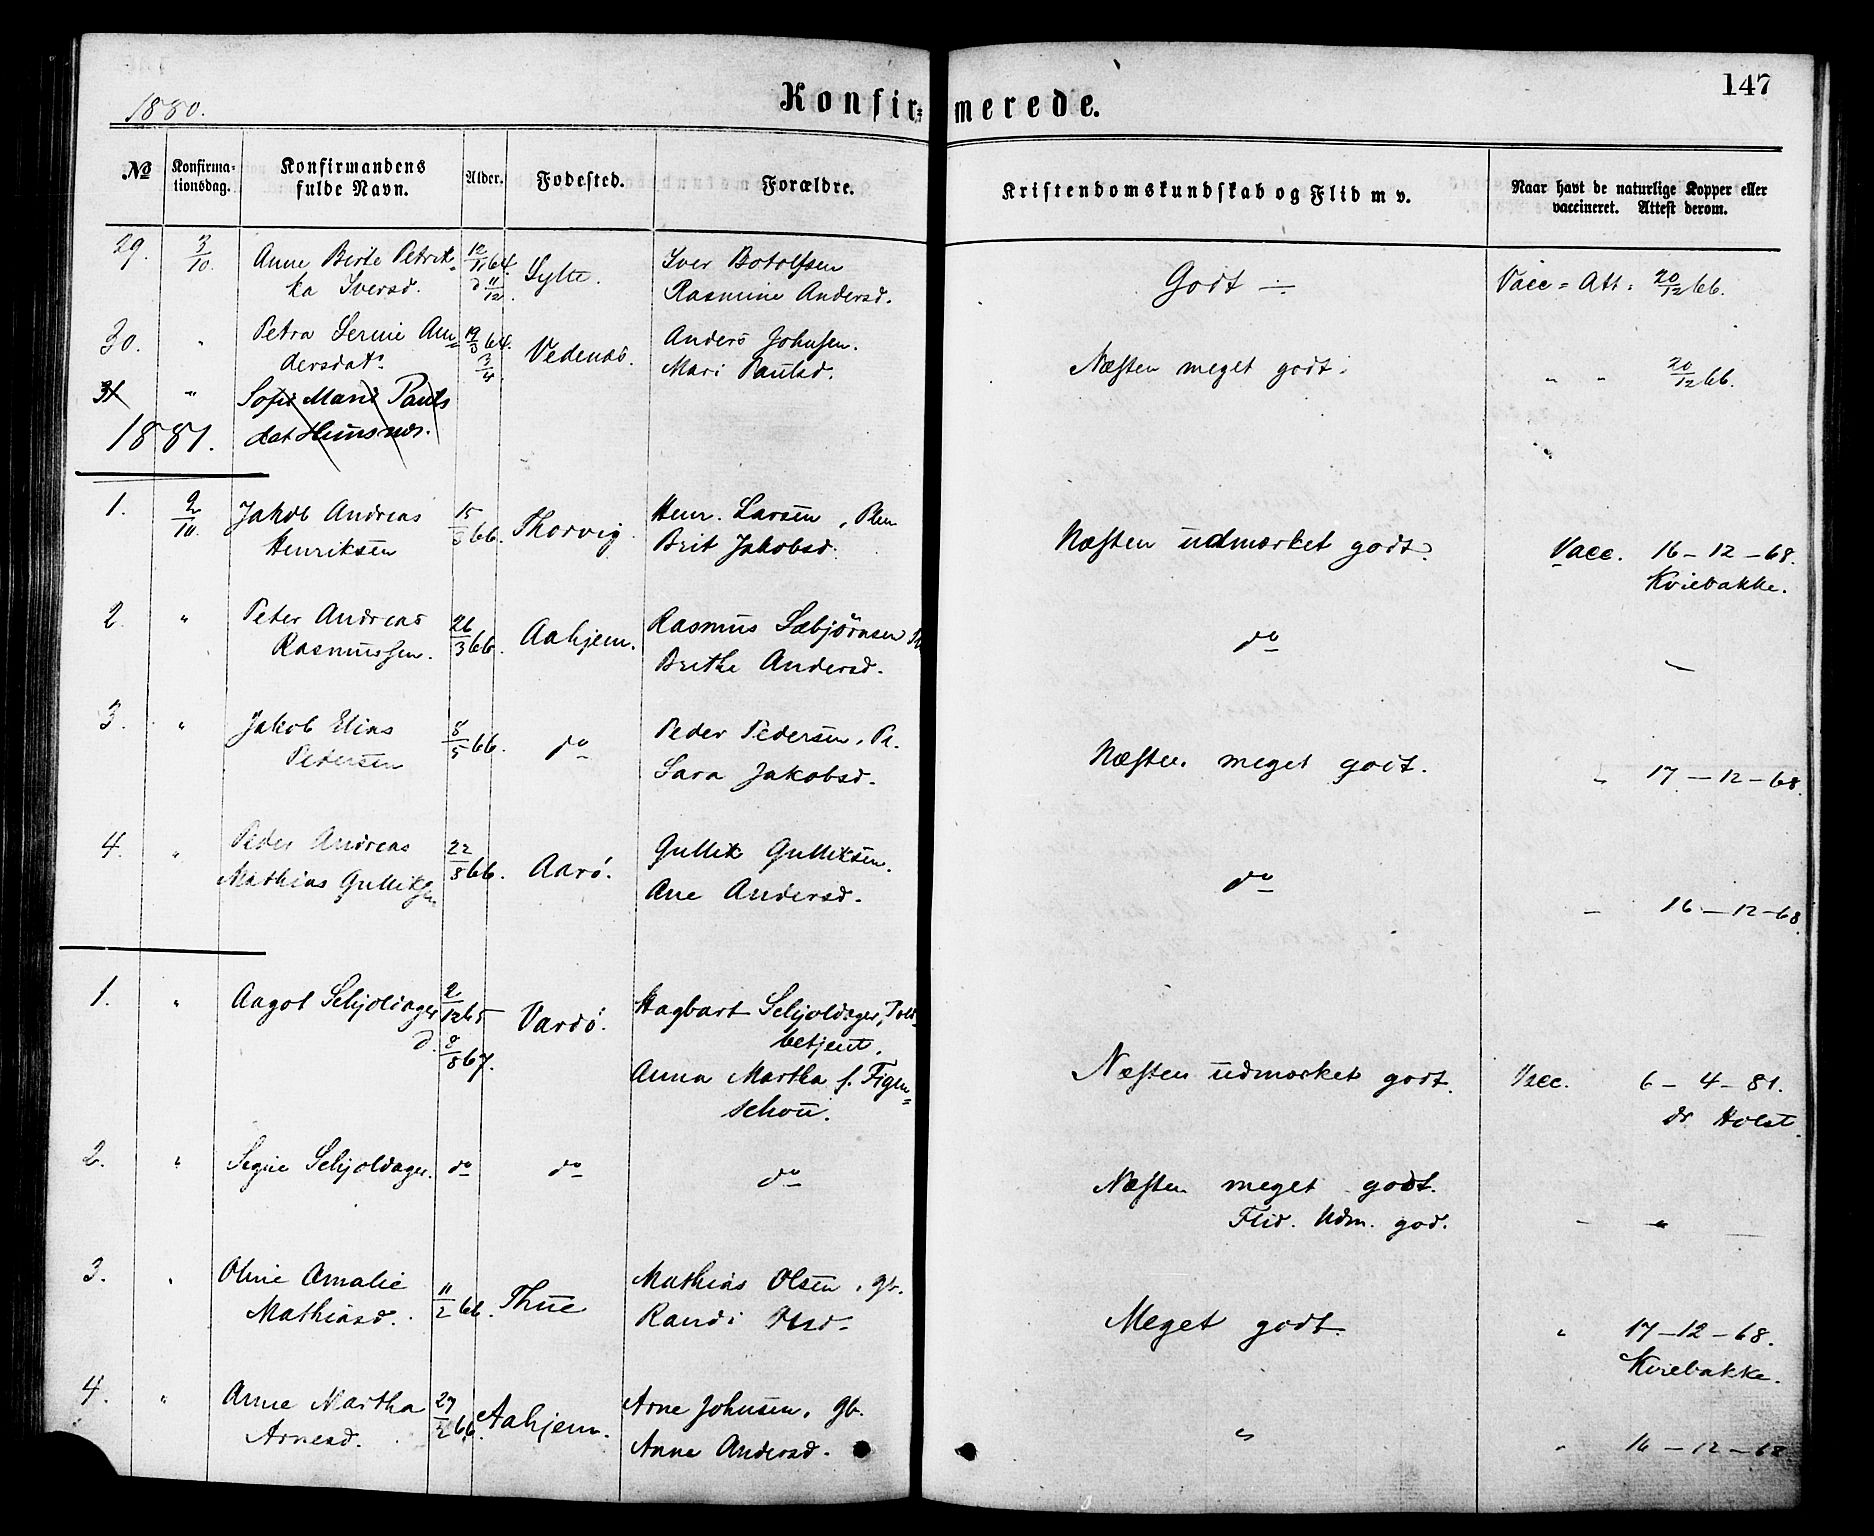 147
1880.
Konfir= merede.
No
Konfirma-
tionsdag.
Konfirmandens
fulde Navn.
Alder.
Fødested.
Forældre.
Kristendomskundskab og Flid m v.
Naar havt de naturlige Kopper eller
vaccineret. Attest derom.
29. 3/10. Anne Birte Petrik= 12/11 64. Sylte. Iver Botolfsen Godt Vacc = Att: 20/12 66.
ka Iversd. d 11/12. Rasmine Andersd.
30. " Petra Serine An= 19/3 64. Vedenæs. Anders Johnsen. Næsten meget godt. " " 20/12 66.
dersdatr. 3/4. Mari Paulsd.
31 " Sofie Marie Pauls
1881. dat Hennsnæs.
1. 2/10. Jakob Andreas 15/3 66. Thorvig. Henr. Larsen, Næsten udmærket godt. Vacc. 16-12-68.
Henriksen Brit Jakobsd. Kviebakke.
2. " Peter Andreas 26/3 66. Aahjem. Rasmus Sæbjörnsen do —
Rasmussen. Brithe Andersd.
3. " Jakob Elias 8/5 66. do Peder Pedersen, Pl. Næsten meget godt. " 17-12-68.
Pedersen Sara Jakobsd.
4. " Peder Andreas 22/8 66. Aarö. Gullik Gulliksen. do — 16-12-68.
Mathias Gulliksen Ane Andersd.
1. " Aagot Schjoldager 2/12 65 Vardö. Hagbart Schjoldager, Told=
d. 8/8 67. betjent. Næsten udmærket godt. Vacc. 6-4-81.
Anna Martha f. Figen=
schou. dr Holst.
2. " Signe Schjoldager. do do do Næsten meget godt.
Flid. Udm. god. - " —
3. " Oline Amalie 11/2 66. Thue Mathias Olsen, gb. Meget godt. " 17-12-68.
Mathiasd. Randi Olsd. Kviebakke.
4. " Anne Martha 27/2 66. Aahjem. Arne Johnsen, gb. " " 16-12-68
Arnesd. Anne Andersd.